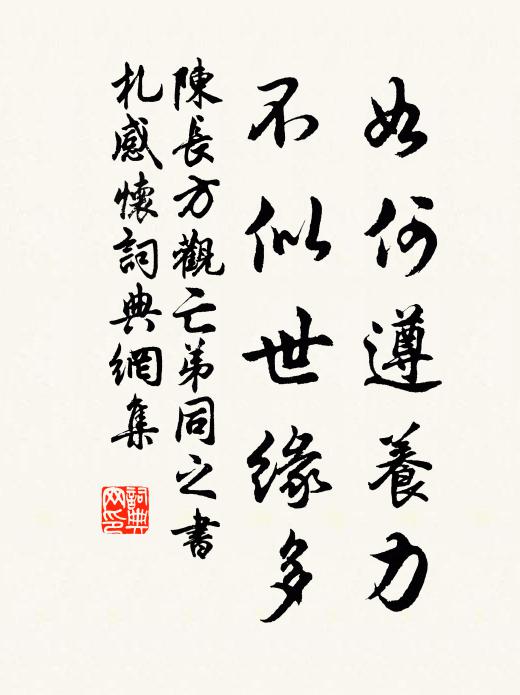 如何遵養力
不似世緣多
陳長方觀亡弟同之書
札感懷詞典網集
詞典
网印